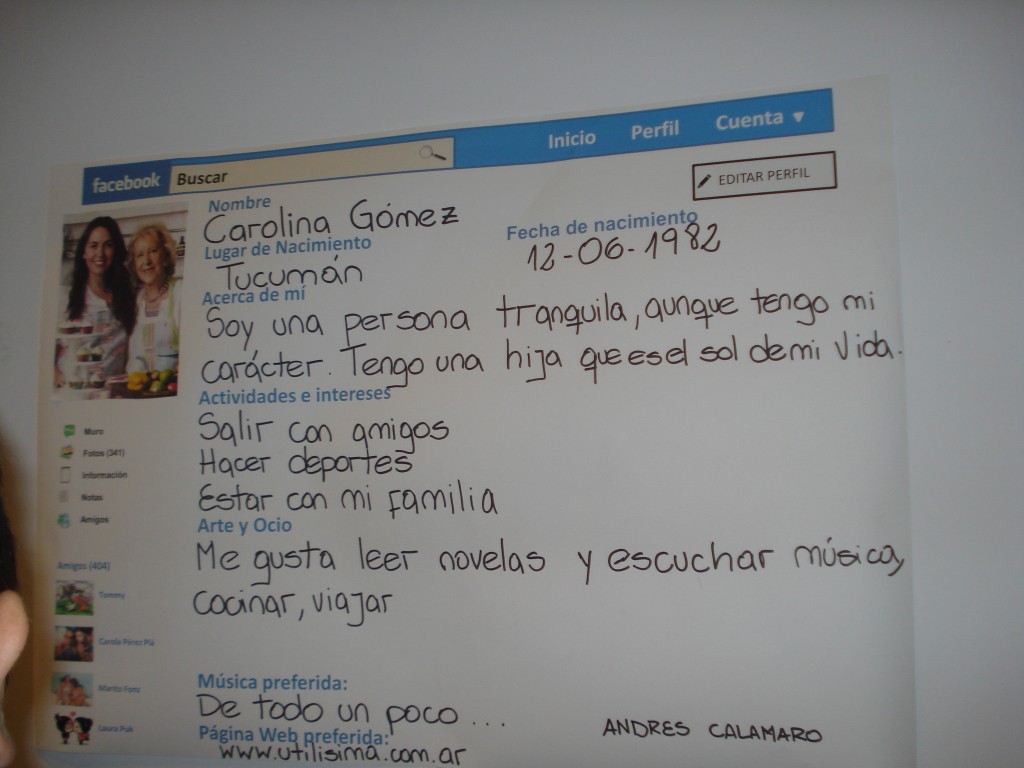 facebook Buscar Inicio Perfil Cuenta ▼
EDITAR PERFIL
Nombre
Carolina Gómez
Fecha de nacimiento
12-06-1982
Lugar de Nacimiento
Tucumán
Acerca de mí
Soy una persona tranquila, aunque tengo mi
carácter. Tengo una hija que es el sol de mi vida.
Actividades e intereses
Salir con amigos
Hacer deportes
Estar con mi familia
Arte y Ocio
Me gusta leer novelas y escuchar música,
cocinar, viajar
Música preferida:
De todo un poco... ANDRES CALAMARO
Página Web preferida:
www.utilisima.com.ar
Muro
Fotos (341)
Información
Notas
Amigos
Amigos (404)
Tommy
Carola Pérez Plá
Marito Fons
Laura Puk